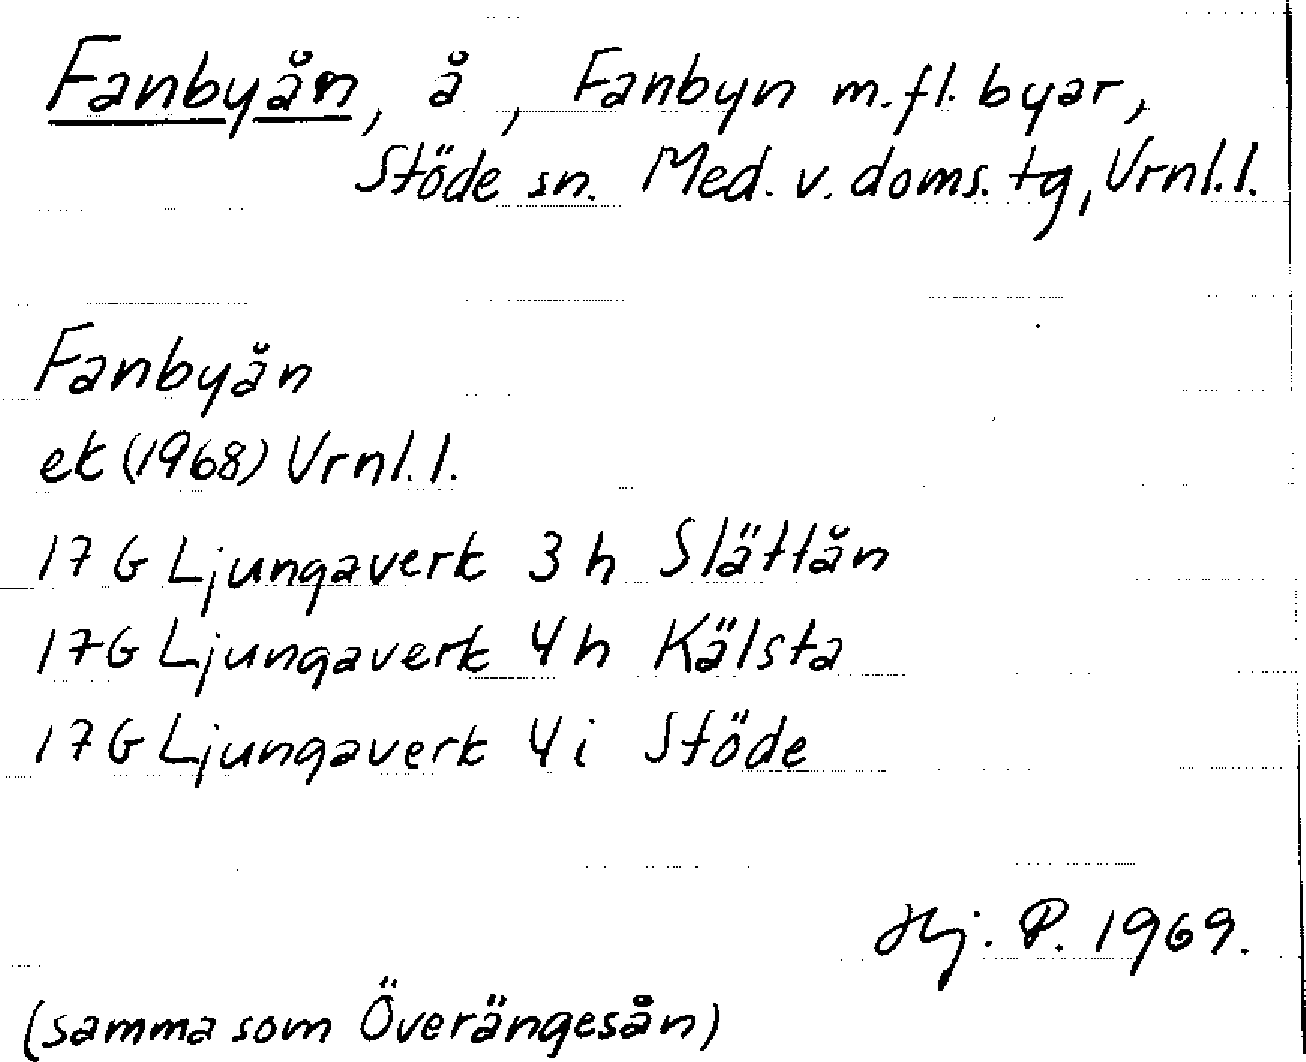 Fanbyån, å, Fanbyn m.fl. byar,
Stöde sn. Med. v. doms. tg, Vrnl. l.
Fanbyån
ek (1968) Vrnl. l.
17 G Ljungaverk 3 h Slättån
17G Ljungaverk 4 h Kälsta
17 G Ljungaverk 4 i Stöde
Hj. P. 1969.
(samma som Överängesån)